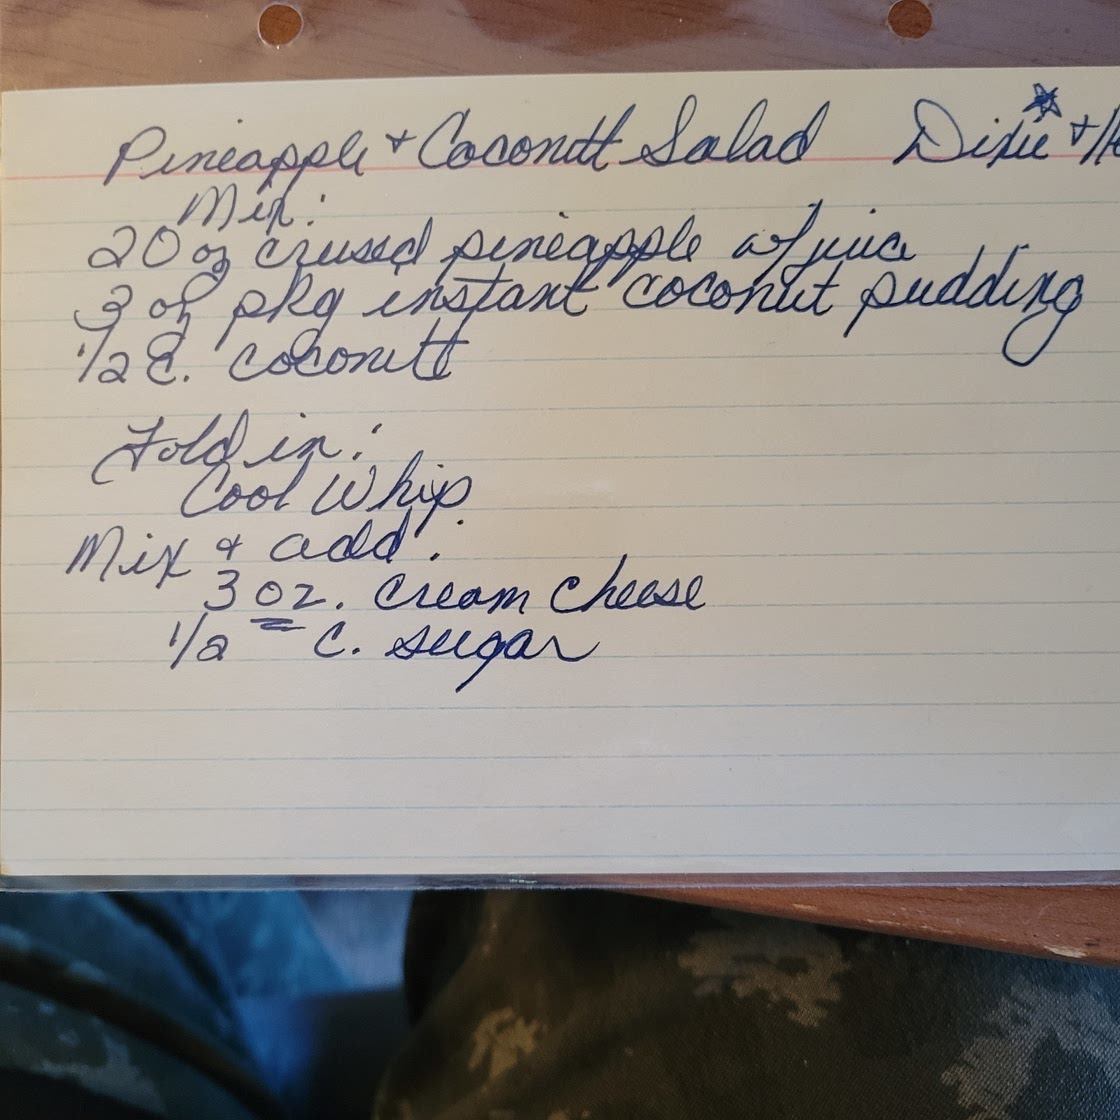 Pineapple + Coconutt Salad Dixie +
Mix:
20 oz crused pineapple w/juice
3 oz pkg instant coconut pudding
1/2 C. coconutt
Fold in:
Cool Whip
Mix & add:
3 oz. cream cheese
1/2 C. sugar